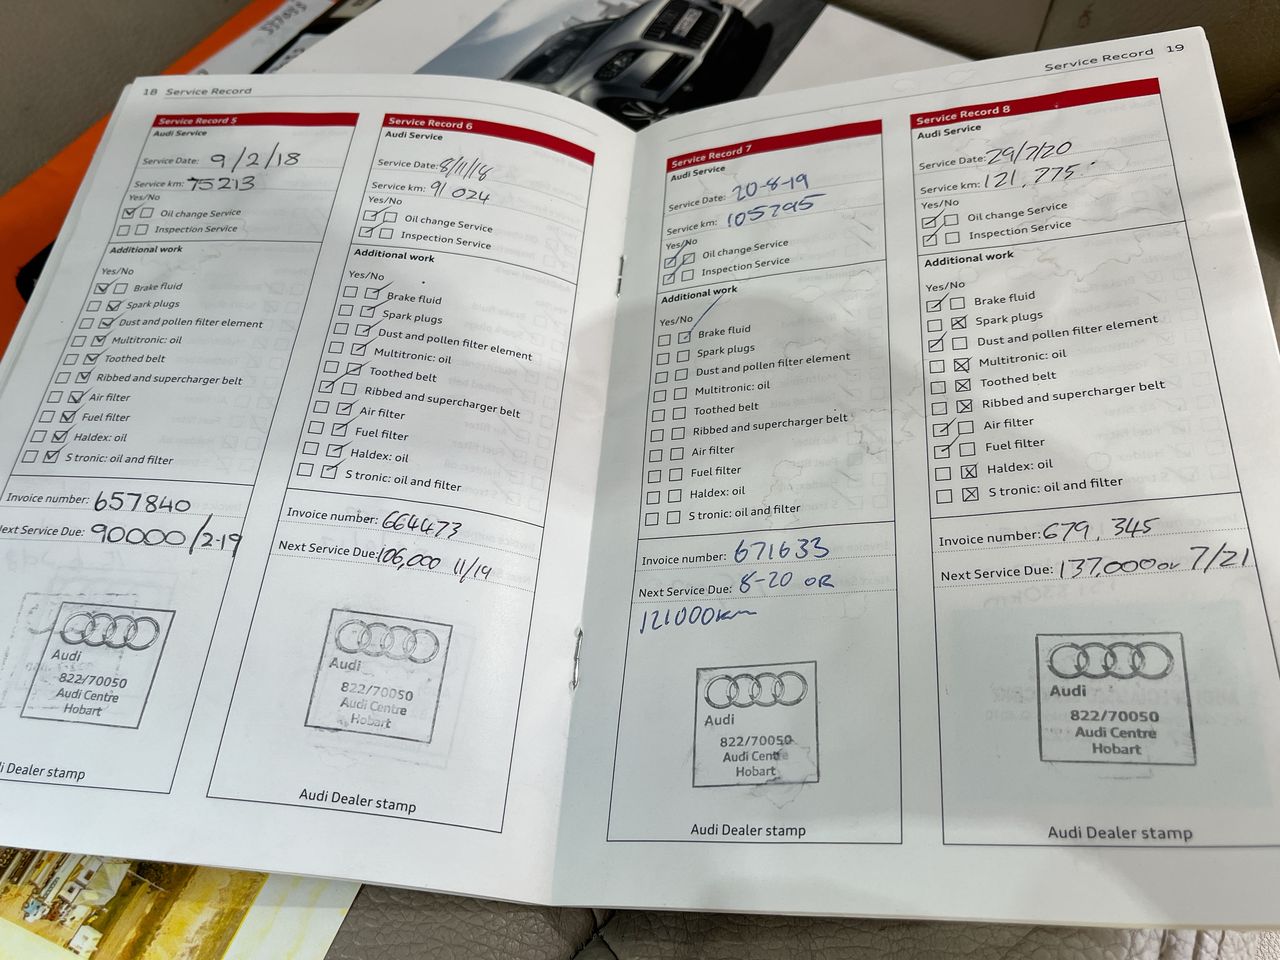 18 Service Record
Service Record 5
Audi Service
Service Date: 9/2/18
Service km: 75213
Yes/No
Oil change Service
Inspection Service
Additional work
Yes/No
Brake fluid
Spark plugs
Dust and pollen filter element
Multitronic: oil
Toothed belt
Ribbed and supercharger belt
Air filter
Fuel filter
Haldex: oil
S tronic: oil and filter
Invoice number: 657840
Next Service Due: 90000/2-19
Audi
822/70050
Audi Centre
Hobart
Audi Dealer stamp
Service Record 6
Audi Service
Service Date: 8/11/18
Service km: 91 024
Yes/No
Oil change Service
Inspection Service
Additional work
Yes/No
Brake fluid
Spark plugs
Dust and pollen filter element
Multitronic: oil
Toothed belt
Ribbed and supercharger belt
Air filter
Fuel filter
Haldex: oil
S tronic: oil and filter
Invoice number: 664473
Next Service Due: 106,000 11/19
Audi
822/70050
Audi Centre
Hobart
Audi Dealer stamp
Service Record 19
Service Record 7
Audi Service
Service Date: 20-8-19
Service km: 105295
Yes/No
Oil change Service
Inspection Service
Additional work
Yes/No
Brake fluid
Spark plugs
Dust and pollen filter element
Multitronic: oil
Toothed belt
Ribbed and supercharger belt
Air filter
Fuel filter
Haldex: oil
S tronic: oil and filter
Invoice number: 671633
Next Service Due: 8-20 OR
121000km
Audi
822/70050
Audi Centre
Hobart
Audi Dealer stamp
Service Record 8
Audi Service
Service Date: 29/7/20
Service km: 121,775
Yes/No
Oil change Service
Inspection Service
Additional work
Yes/No
Brake fluid
Spark plugs
Dust and pollen filter element
Multitronic: oil
Toothed belt
Ribbed and supercharger belt
Air filter
Fuel filter
Haldex: oil
S tronic: oil and filter
Invoice number: 679,345
Next Service Due: 137,000 or 7/21
Audi
822/70050
Audi Centre
Hobart
Audi Dealer stamp